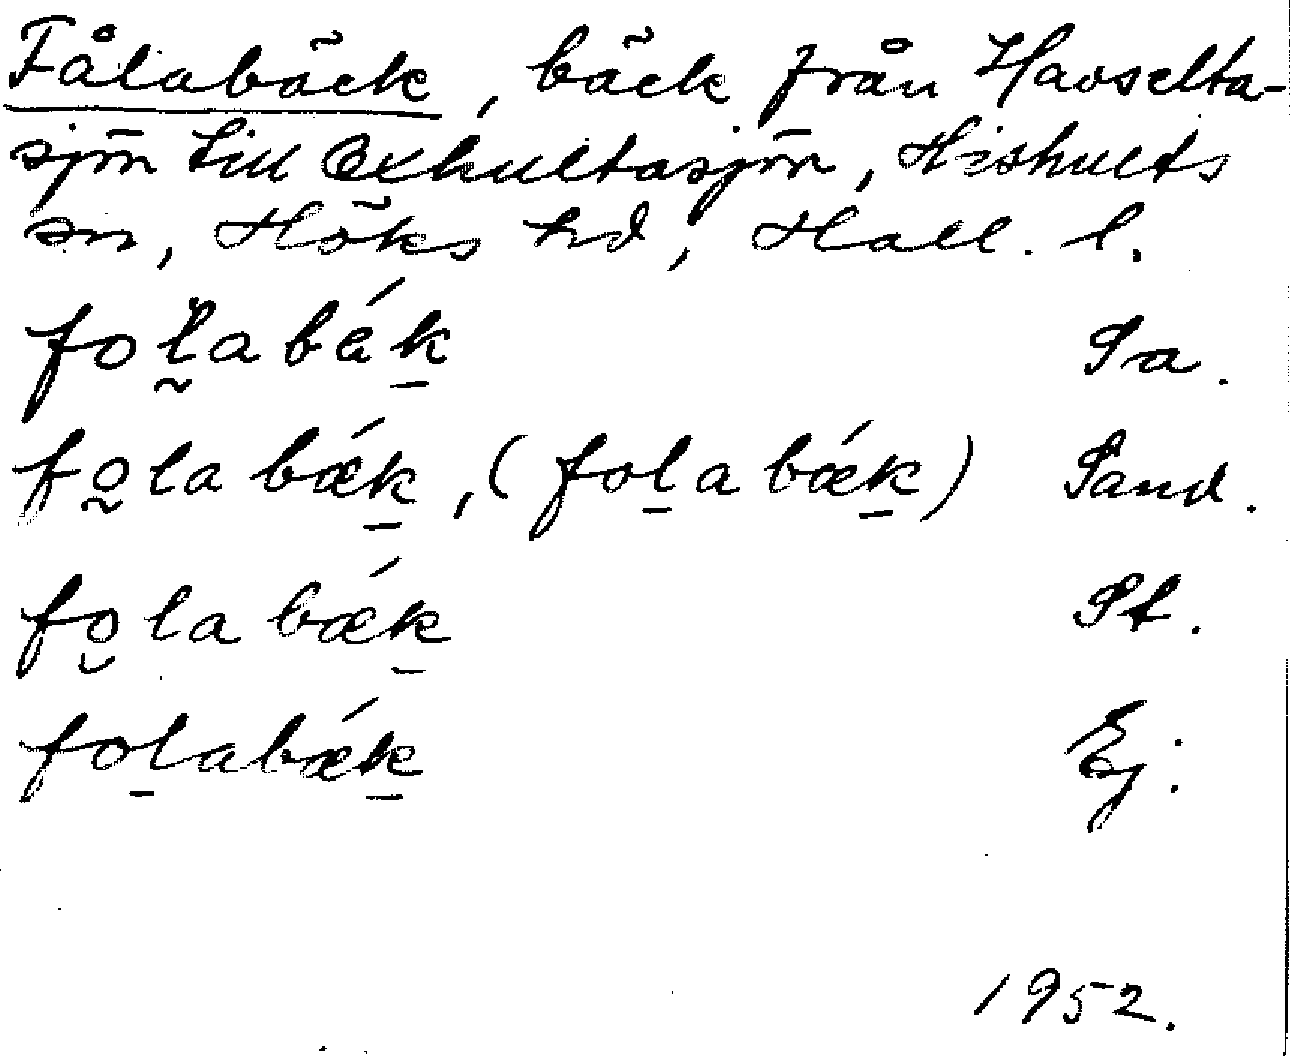 Fålabäck, bäck från Havselta-
sjön till Oxhultasjön, Hishults
sn, Höks hd, Hall. l.
fol̰abǽk̠ Sa.
fo̰la bǽk̠, (fol̠a bǽk̠) Sand.
fo̮la bǽk̠ St.
fol̠abǽk̠ Ej.
1952.